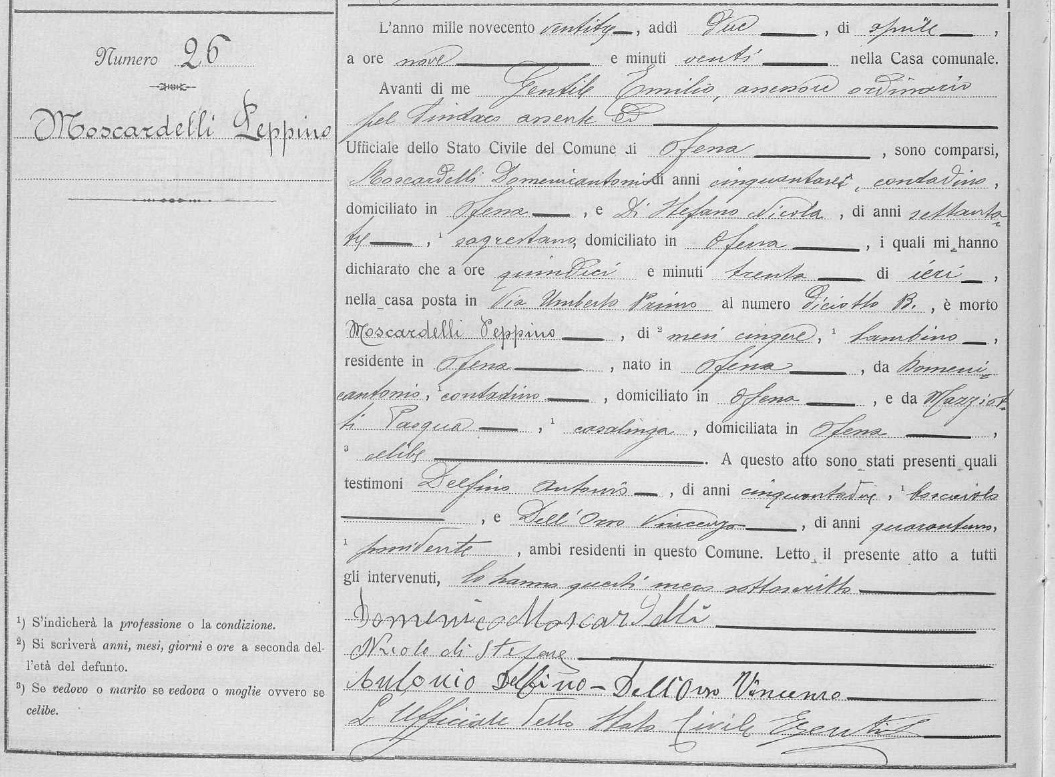 Numero 26
Moscardelli Peppino
L'anno mille novecento, addì due, di aprile,
a ore nove e minuti venti nella Casa comunale.
Avanti di me Gentile Emilio, assessore ordinario
pel Sindaco assente
Ufficiale dello Stato Civile del Comune di Ofena, sono comparsi,
Moscardelli Domenicantonio di anni, contadino,
domiciliato in Ofena, e Di Stefano Nicola, di anni settanta-
tre, ¹ sagrestano, domiciliato in Ofena, i quali mi hanno
dichiarato che a ore quindici e minuti trenta di ieri,
nella casa posta in Via Umberto Primo al numero diciotto B., è morto
Moscardelli Peppino, di ² mesi cinque, ¹ bambino,
residente in Ofena, nato in Ofena, da Domeni-
cantonio, ¹ contadino, domiciliato in Ofena, e da Mazziot-
ti Pasqua, ¹ casalinga, domiciliata in Ofena,
³ celibe. A questo atto sono stati presenti quali
testimoni Delfino Antonio, di anni cinquantadue, ¹
, e Dell'Orso Vincenzo, di anni quarantuno,
¹ possidente, ambi residenti in questo Comune. Letto il presente atto a tutti
gli intervenuti, lo hanno questi meco sottoscritto
Domenico Moscardelli
Nicola di Stefano
Antonio Delfino – Dell'Orso Vincenzo
L'Ufficiale dello Stato Civile
¹) S'indicherà la professione o la condizione.
²) Si scriverà anni, mesi, giorni e ore a seconda del-
l'età del defunto.
³) Se vedovo o marito se vedova o moglie ovvero se
celibe.